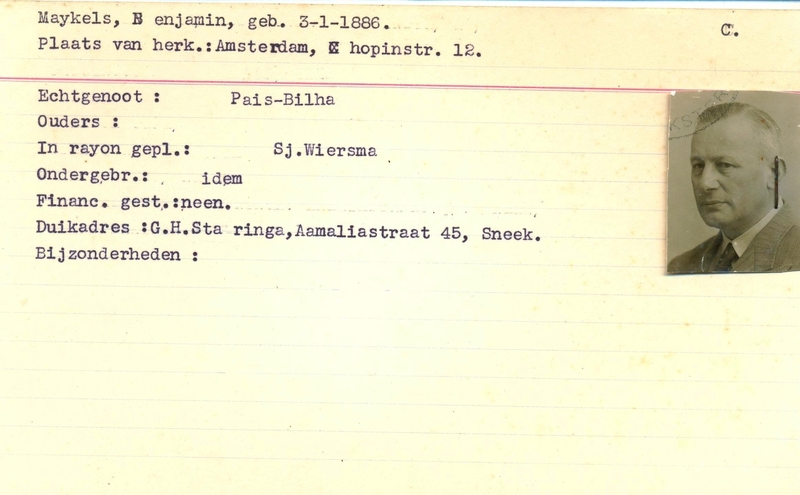 Maykels, B enjamin, geb. 3-1-1886.
C.
Plaats van herk.:Amsterdam, C hopinstr. 12.
Echtgenoot : Pais-Bilha
Ouders :
In rayon gepl.: Sj.Wiersma
Ondergebr.: idem
Financ. gest.:neen.
Duikadres :G.H.Sta ringa,Aamaliastraat 45, Sneek.
Bijzonderheden :